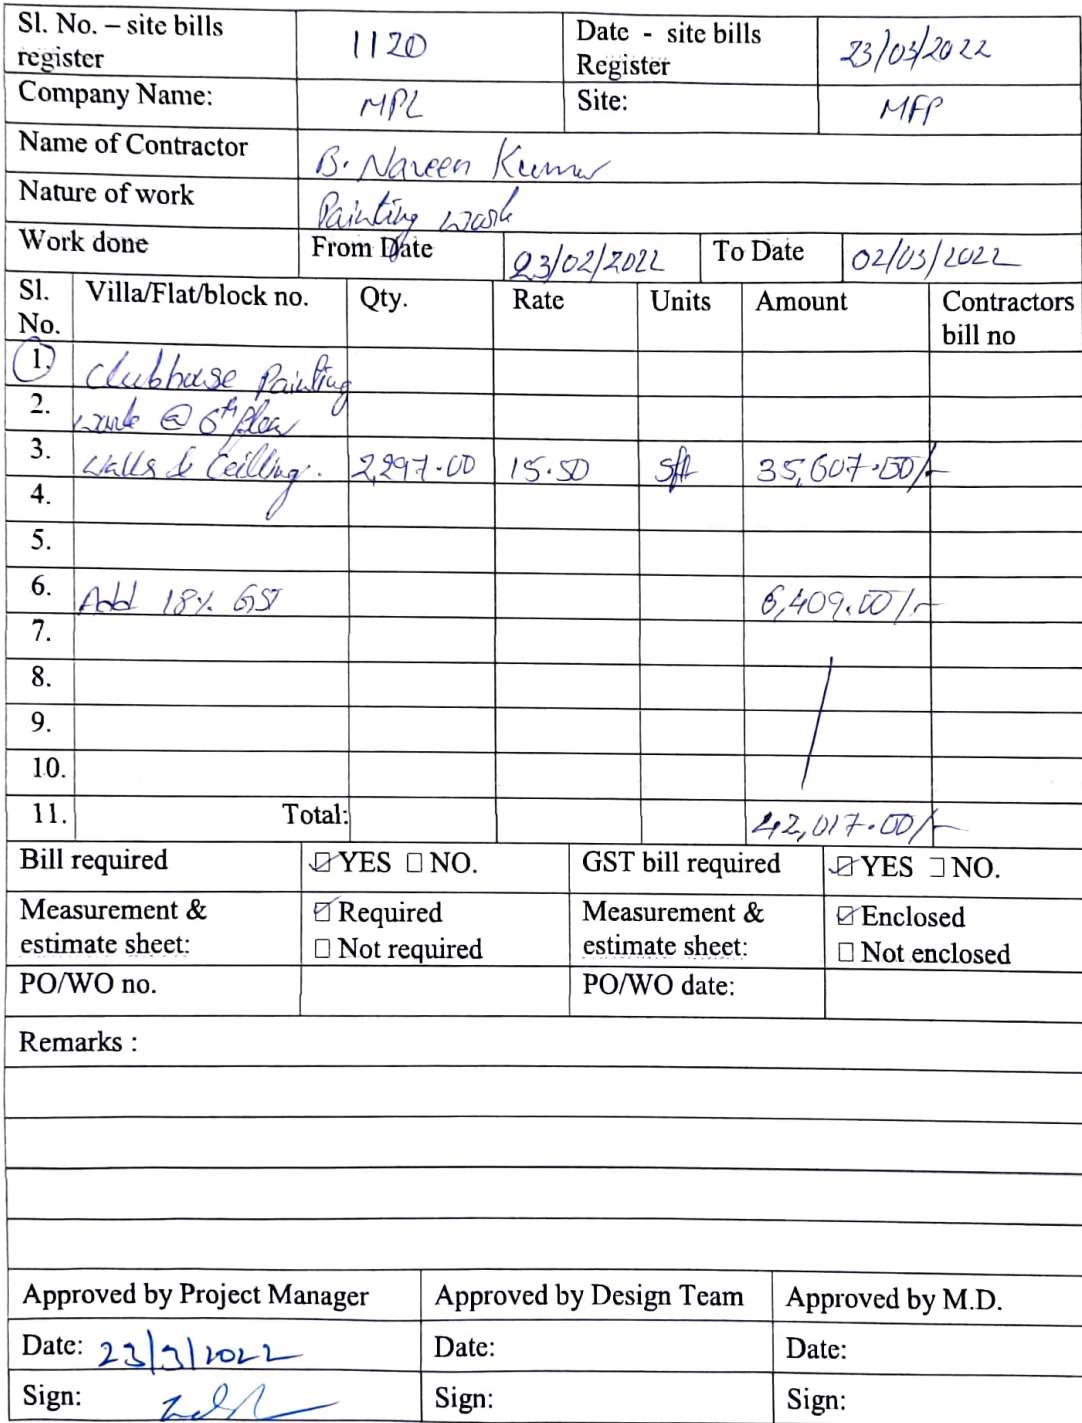 Sl. No. – site bills register 1120 Date - site bills Register 23/03/2022
Company Name: MPL Site: MFP
Name of Contractor B. Naveen Kumar
Nature of work Painting work
Work done From Date 23/02/2022 To Date 02/03/2022
Sl. No. Villa/Flat/block no. Qty. Rate Units Amount Contractors bill no
1. Clubhouse Painting
2. work @ 6th floor
3. Walls & Ceilling. 2,297.00 15.50 sft 35,607.00/-
4.
5.
6. Add 18% GST 6,409.00/-
7.
8.
9.
10.
11. Total: 42,017.00/-
Bill required ☑ YES ☐ NO. GST bill required ☑ YES ☐ NO.
Measurement & estimate sheet: ☑ Required ☐ Not required Measurement & estimate sheet: ☑ Enclosed ☐ Not enclosed
PO/WO no. PO/WO date:
Remarks :
Approved by Project Manager Approved by Design Team Approved by M.D.
Date: 23/3/2022 Date: Date:
Sign: Sign: Sign: